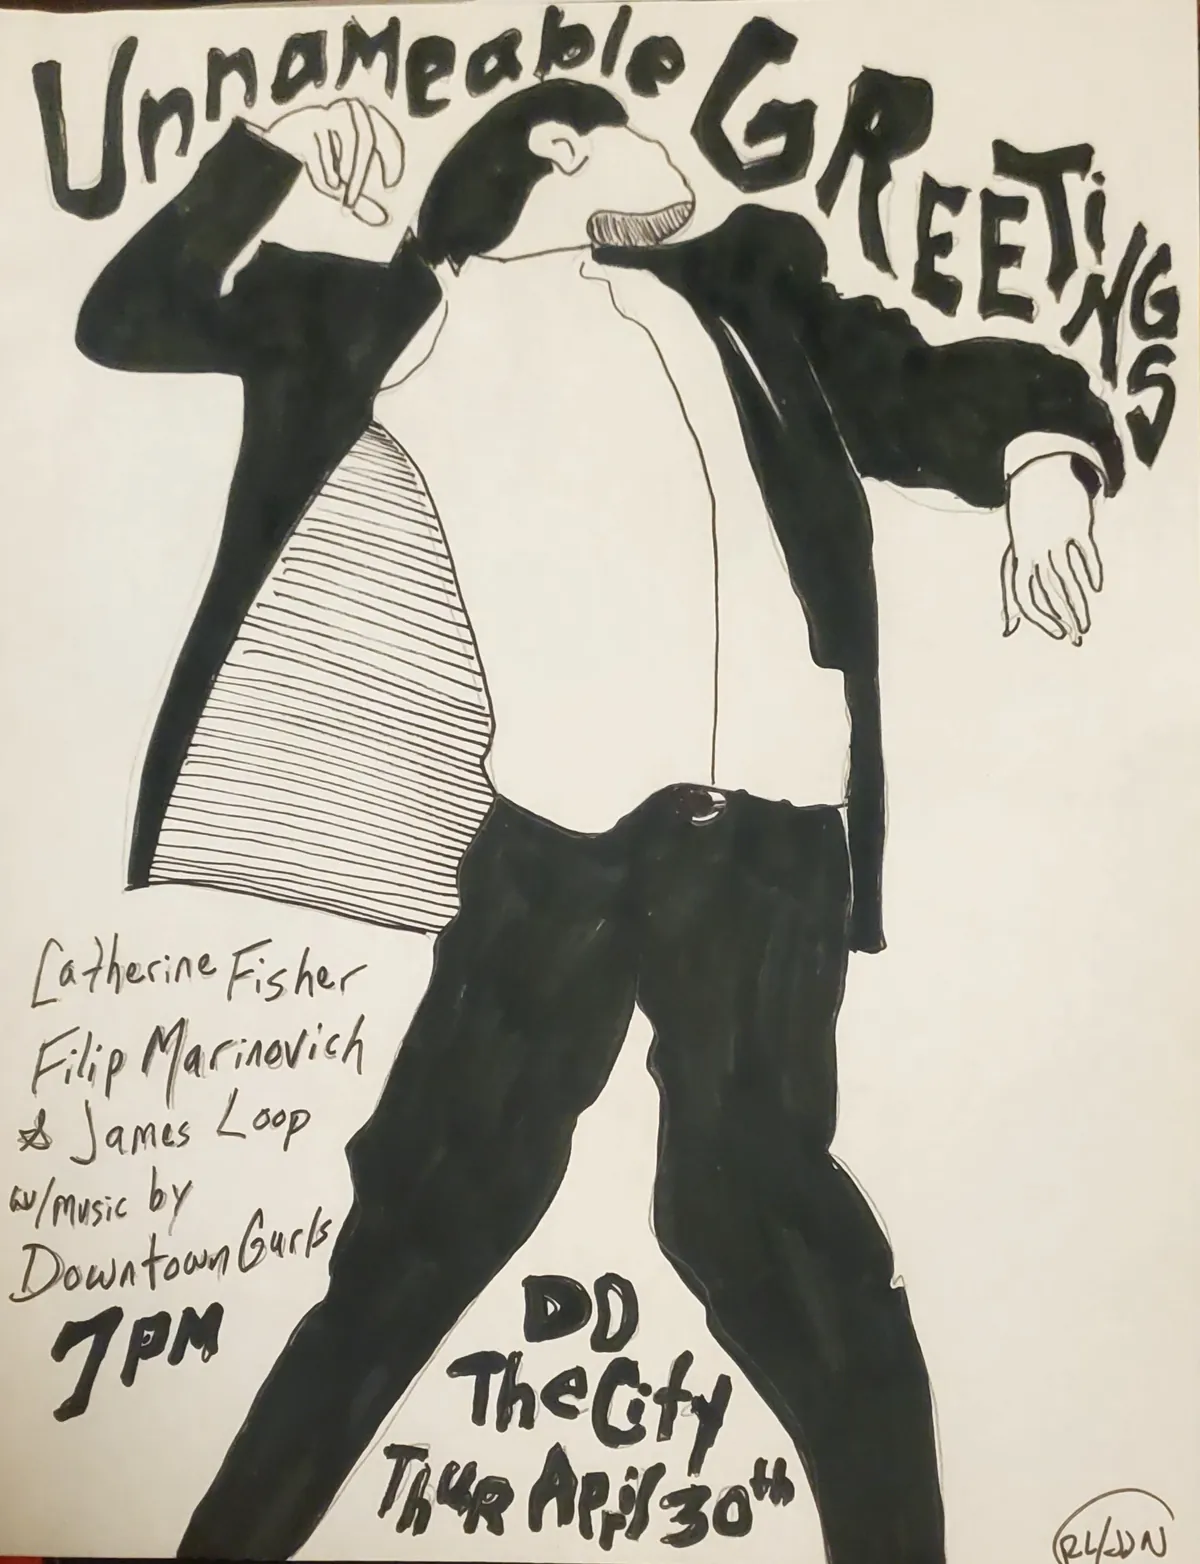 Unnameable GREETiNGS
Catherine Fisher
Filip Marinovich
& James Loop
w/music by
Downtown Gurls
7PM
DD
The City
Thur April 30th